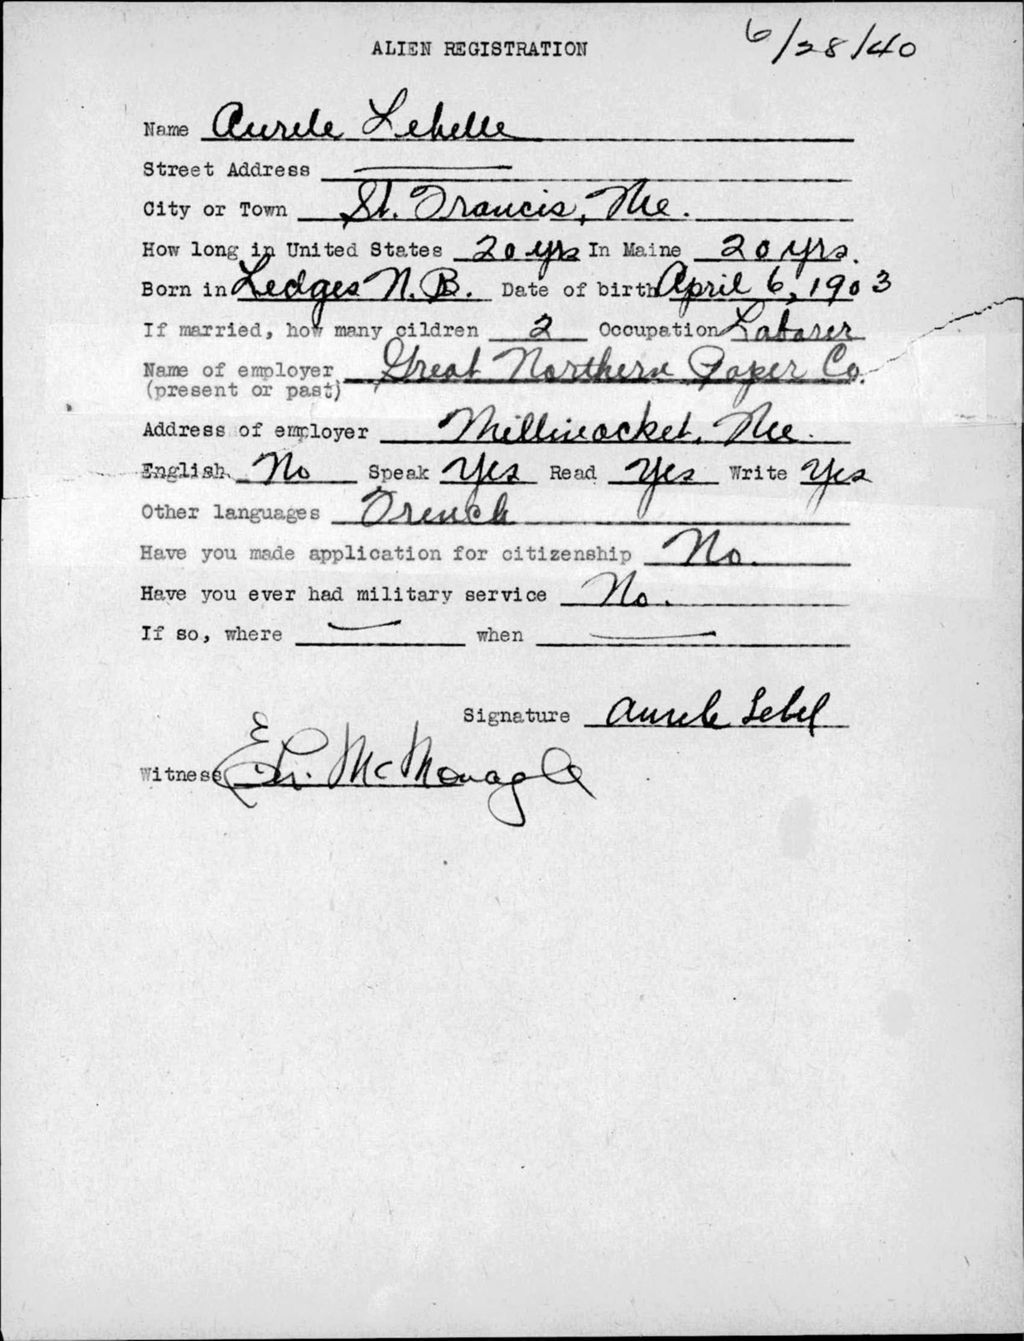 ALIEN REGISTRATION 6/28/40
Name Aurele Lebelle
Street Address
City or Town St. Francis, Me.
How long in United States 20 yrs In Maine 20 yrs.
Born in Ledges N.B. Date of birth April 6, 1903
If married, how many cildren 2 Occupation Laborer
Name of employer Great Northern Paper Co.
(present or past)
Address of employer Millinocket, Me.
English No Speak Yes Read Yes Write Yes
Other languages French
Have you made application for citizenship No.
Have you ever had military service No.
If so, where when
Signature Aurele Lebel
Witness McMonagle